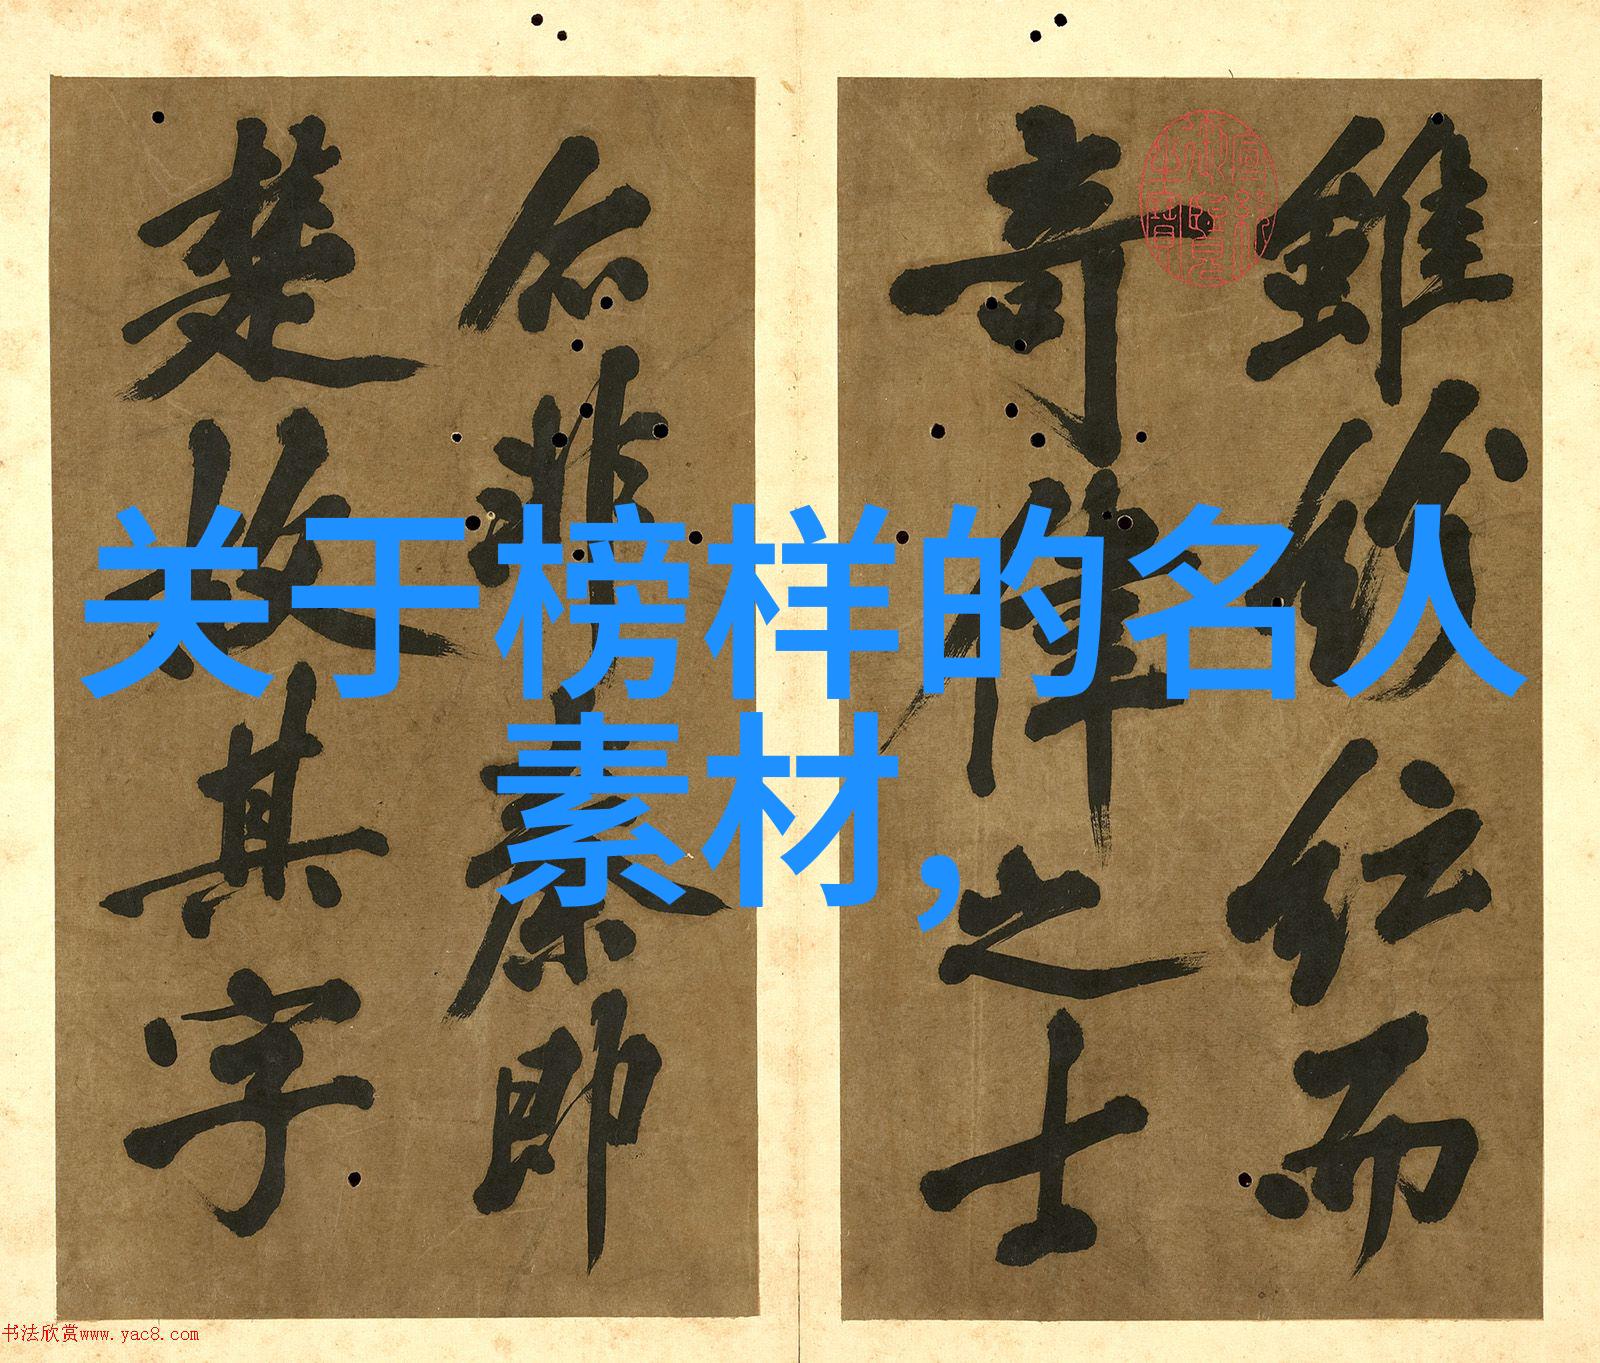 关于榜样的名人
素材,
雖紛紜而
奇偉之士
非秦即
楚故其字
书法欣赏www.yac8.com